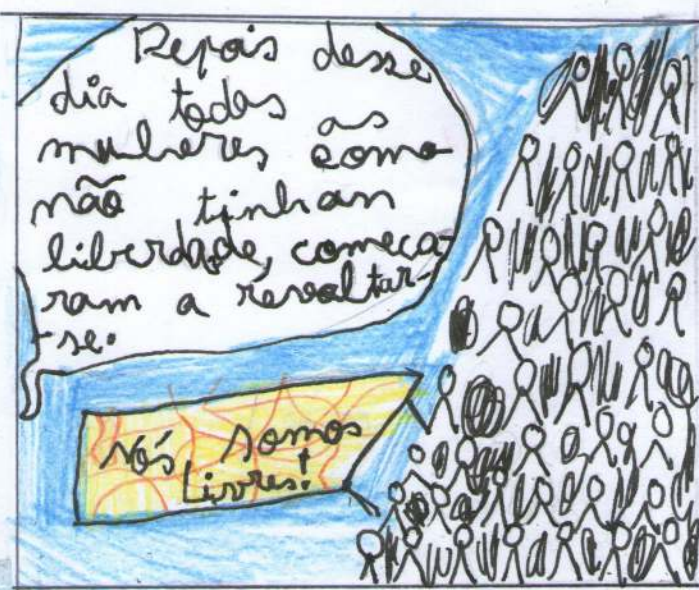 Depois desse
dia todas as
mulheres como
não tinham
liberdade, começa-
ram a revoltar-
-se.
Nós somos
Livres!